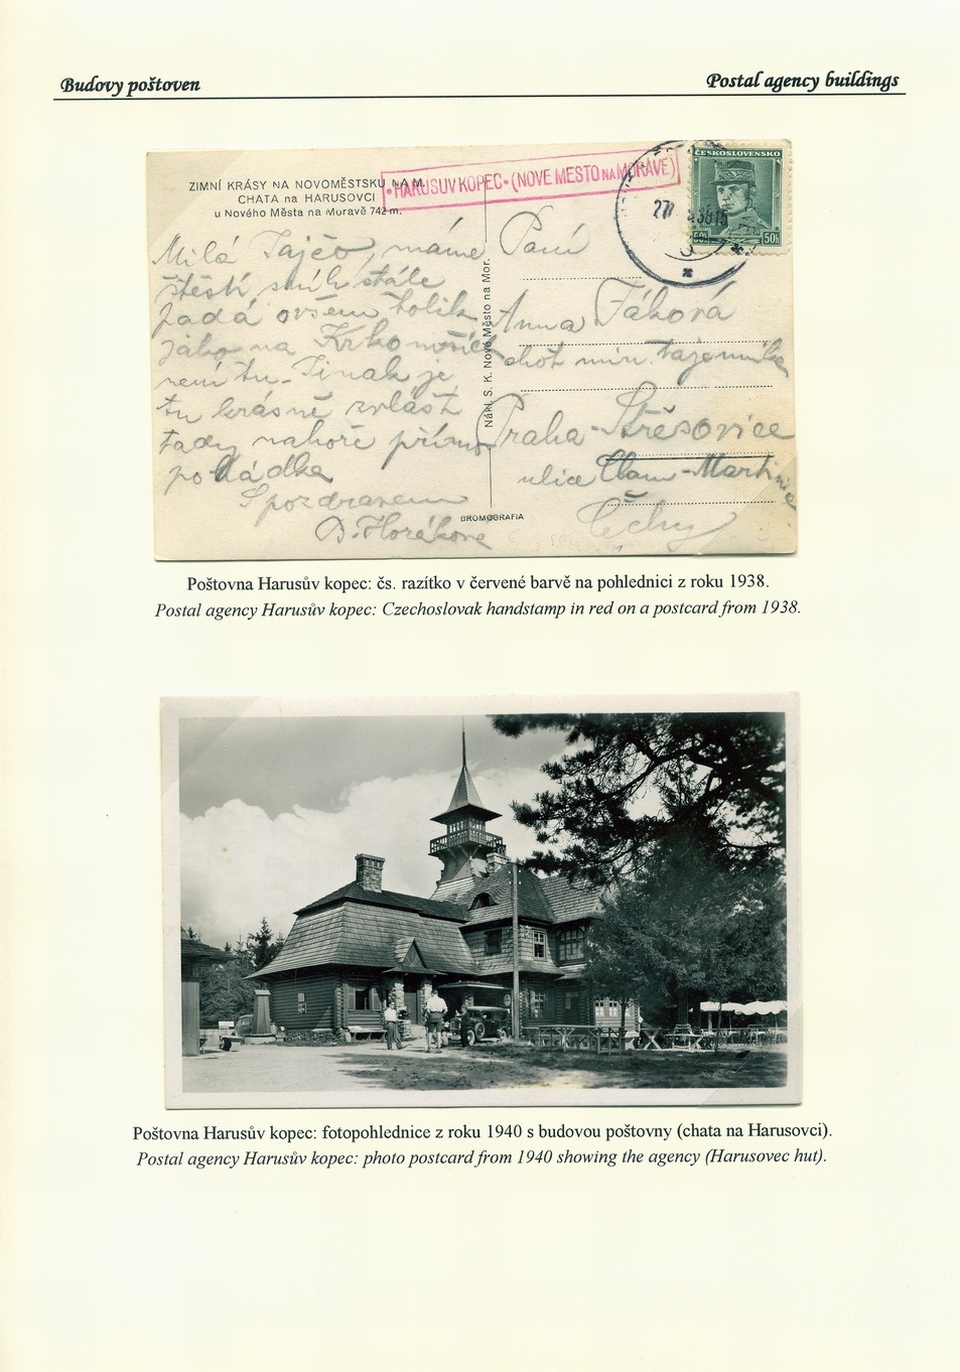 Budovy poštoven
Postal agency buildings
ZIMNÍ KRÁSY NA NOVOMĚSTSKU NA M.
CHATA na HARUSOVCI
u Nového Města na Moravě 742 m.
•HARUSŮV KOPEC• (NOVÉ MĚSTO NA MORAVĚ)
ČESKOSLOVENSKO
50h 50h
Milá Tajčo, máme
štěstí, sníh stále
padá ovšem tolik
jako na Krkonoších
není tu. Jinak je
tu krásně zvlášť
tady nahoře přímo
pohádka
S pozdravem
D. Horáková
Nákl. S. K. Nové Město na Mor.
BROMOGRAFIA
Paní
Anna
choť min. tajemníka
Praha-Střešovice
ulice Clam-Martinic
Čechy
Poštovna Harusův kopec: čs. razítko v červené barvě na pohlednici z roku 1938.
Postal agency Harusův kopec: Czechoslovak handstamp in red on a postcard from 1938.
Poštovna Harusův kopec: fotopohlednice z roku 1940 s budovou poštovny (chata na Harusovci).
Postal agency Harusův kopec: photo postcard from 1940 showing the agency (Harusovec hut).